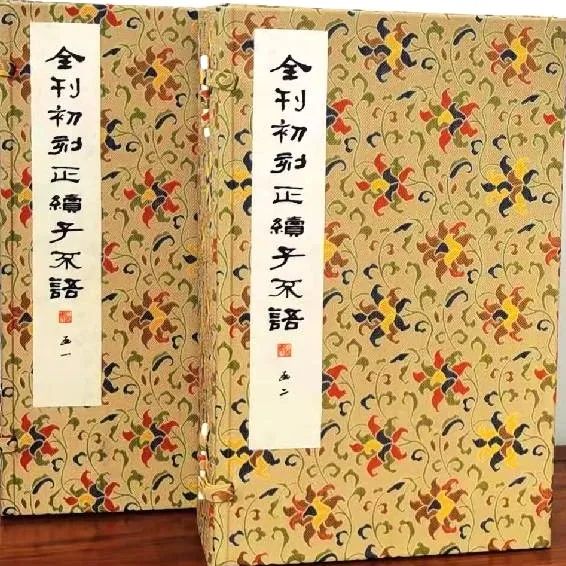 全刊初刻正續子不語
一
全刊初刻正續子不語
二